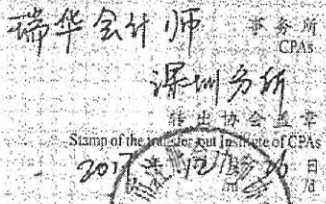 瑞华会计师 事务所
CPAs
深圳分所
转出协会盖章
Stamp of the transfer-out Institute of CPAs
2017年12月26日
/d